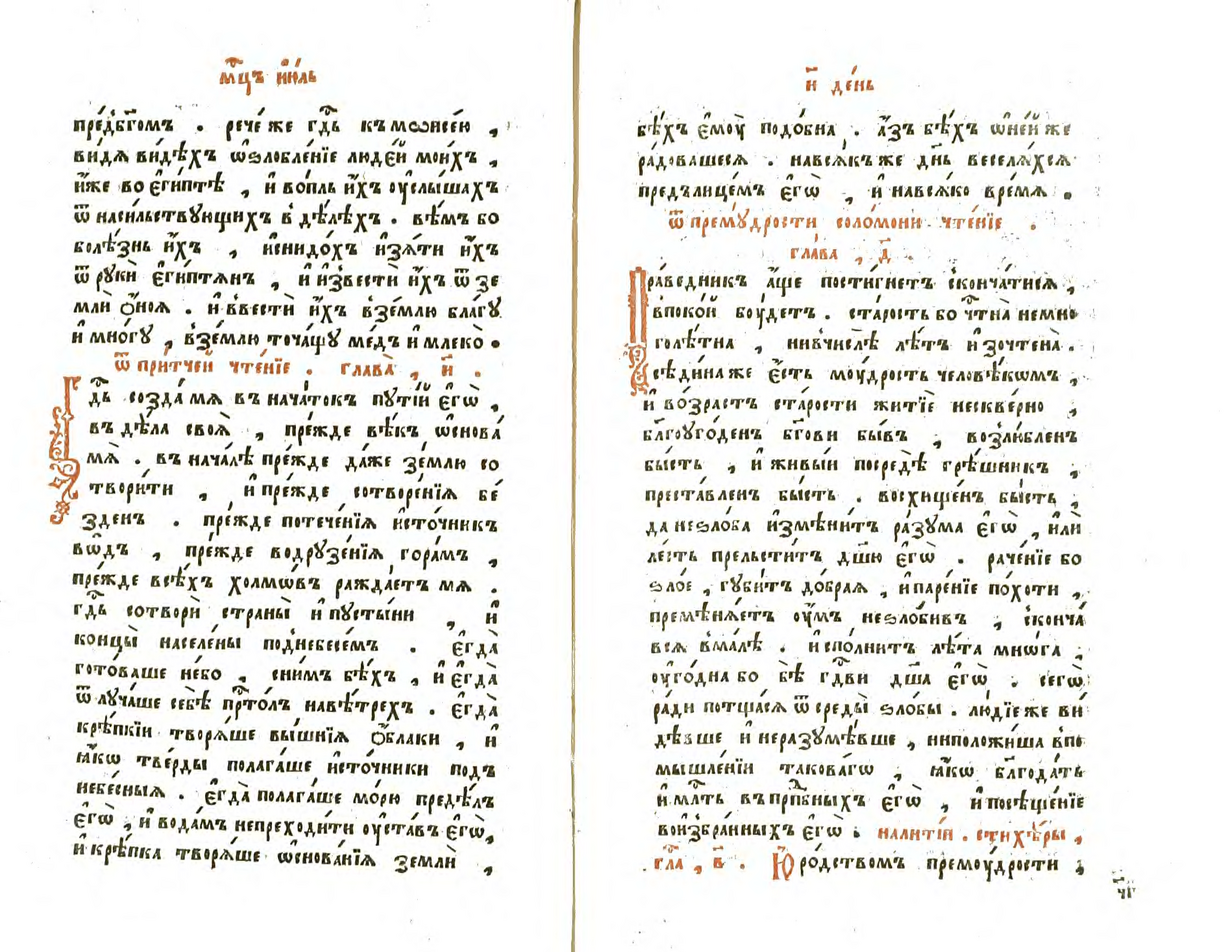 мⷭ҇цъ і҆ю́ль
пре́дбг҃омъ . рече́ же гдⷭ҇ь къ мѡѷсе́ю ,
ви́дѧ ви́дѣхъ ѡ҆ѕлобле́нїе люде́й мои́хъ ,
и҆́же во є҆гѵ́птѣ , и҆ во́пль и҆́хъ ᲂу҆слы́шахъ
ѿ наси́льствꙋющихъ в дѣ́лѣхъ . вѣ́мъ бо
болѣ́знь и҆́хъ , и҆снидо́хъ и҆зѧ́ти и҆́хъ
ѿ рꙋкѝ є҆гѵ́птѧнъ , и҆ и҆звестѝ и҆́хъ ѿ зе
млѝ ѻ҆́ноѧ . и҆ ввестѝ и҆́хъ в зе́млю бла́гꙋ
и҆ мно́гꙋ , в зе́млю точа́щꙋ ме́дъ и҆ млеко̀ .
ѿ при́тчей чте́нїе . глава̀ , и҃ .
Гдⷭ҇ь созда́ мѧ въ нача́токъ пꙋті́й є҆гѡ̀ ,
въ дѣ́ла своѧ̀ , пре́жде вѣ́къ ѡ҆снова́
мѧ̀ . въ нача́лѣ пре́жде да́же зе́млю со
твори́ти , и҆ пре́жде сотворе́нїѧ бе́
зденъ . пре́жде потече́нїѧ и҆сто́чникъ
во́дъ , пре́жде водрꙋже́нїѧ гора́мъ ,
пре́жде всѣ́хъ холмѡ́въ ражда́етъ мѧ .
гдⷭ҇ь сотворѝ страны̀ и҆ пꙋсты́ни , и҆
концы̀ населе́ны под небесе́мъ . є҆гда̀
гото́ваше не́бо , с ни́мъ бѣ́хъ , и҆ є҆гда̀
ѿлꙋча́ше себѣ̀ прⷭ҇то́лъ на вѣ́трехъ . є҆гда̀
крѣ́пкїи творѧ́ше вы́шнїѧ ѻ҆́блаки , и҆
ꙗ҆́кѡ тве́рды полага́ше и҆сто́чники подъ
небе́сныѧ . є҆гда̀ полага́ше мо́рю предѣ́лъ
є҆гѡ̀ , и҆ вода́мъ не преходи́ти ᲂу҆ста́въ є҆гѡ̀,
и҆ крѣ́пка творѧ́ше ѡ҆снова́нїѧ землѝ ,
и҃ де́нь
бѣ́хъ є҆мꙋ̀ подо́бна . а҆́зъ бѣ́хъ ѡ҆ не́й же
ра́довашесѧ . на всѧ́къ же дн҃ь веселѧ́хсѧ
предъ лице́мъ є҆гѡ̀ , и҆ на всѧ́ко вре́мѧ .
ѿ премꙋ́дрости соломо́ни чте́нїе .
глава̀ , д҃ .
Пра́ведникъ а҆́ще пости́гнетъ сконча́тисѧ ,
в поко́и бꙋ́детъ . ста́рость бо чⷭ҇тна̀ не мно
голѣ́тна , ни в числѣ̀ лѣ́тъ и҆зочтена̀ .
сѣди́на же є҆́сть мꙋ́дрость человѣ́кѡмъ ,
и҆ во́зрастъ ста́рости житїѐ нескве́рно ,
бл҃гоꙋго́денъ бг҃ови бы́въ , возлю́бленъ
бы́сть , и҆ живы́и посредѣ̀ грѣ́шникъ ,
преста́вленъ бы́сть . восхище́нъ бы́сть ,
да не ѕло́ба и҆змѣни́тъ ра́зꙋма є҆гѡ̀ , и҆лѝ
ле́сть прельсти́тъ дш҃ю є҆гѡ̀ . раче́нїе бо
ѕло́е , гꙋби́тъ до́браѧ , и҆ паре́нїе по́хоти ,
премѣнѧ́етъ ᲂу҆́мъ неѕло́бивъ , сконча́
всѧ вма́лѣ . и҆спо́лнитъ лѣ́та мнѡ́га ,
ᲂу҆го́дна бо бѣ̀ гдⷭ҇ви дш҃а̀ є҆гѡ̀ . сегѡ̀
ра́ди потща́сѧ ѿ среды̀ ѕло́бы . лю́дїе же ви́
дѣвше и҆ неразꙋмѣ́вше , ни положи́ша в по
мышле́нїи такова́гѡ , ꙗ҆́кѡ благода́ть
и҆ млⷭ҇ть въ прпⷣбныхъ є҆гѡ̀ , и҆ посѣще́нїе
во и҆збра́нныхъ є҆гѡ̀ . на литі́и . стихѣ́ры ,
гла́ , в҃ . Ю҆ро́дствомъ премꙋ́дрости ,